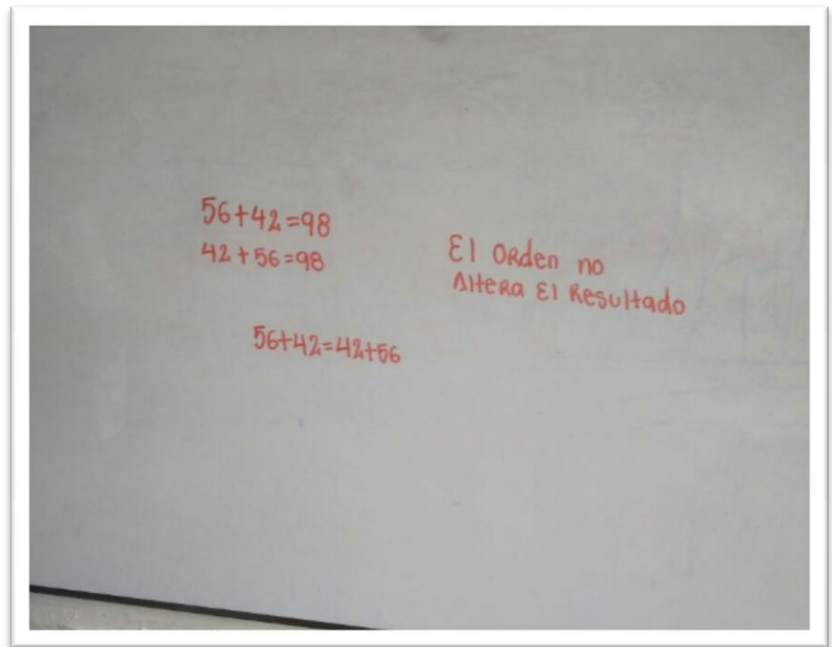 56+42=98
42+56=98
El Orden no
Altera El Resultado
56+42=42+56